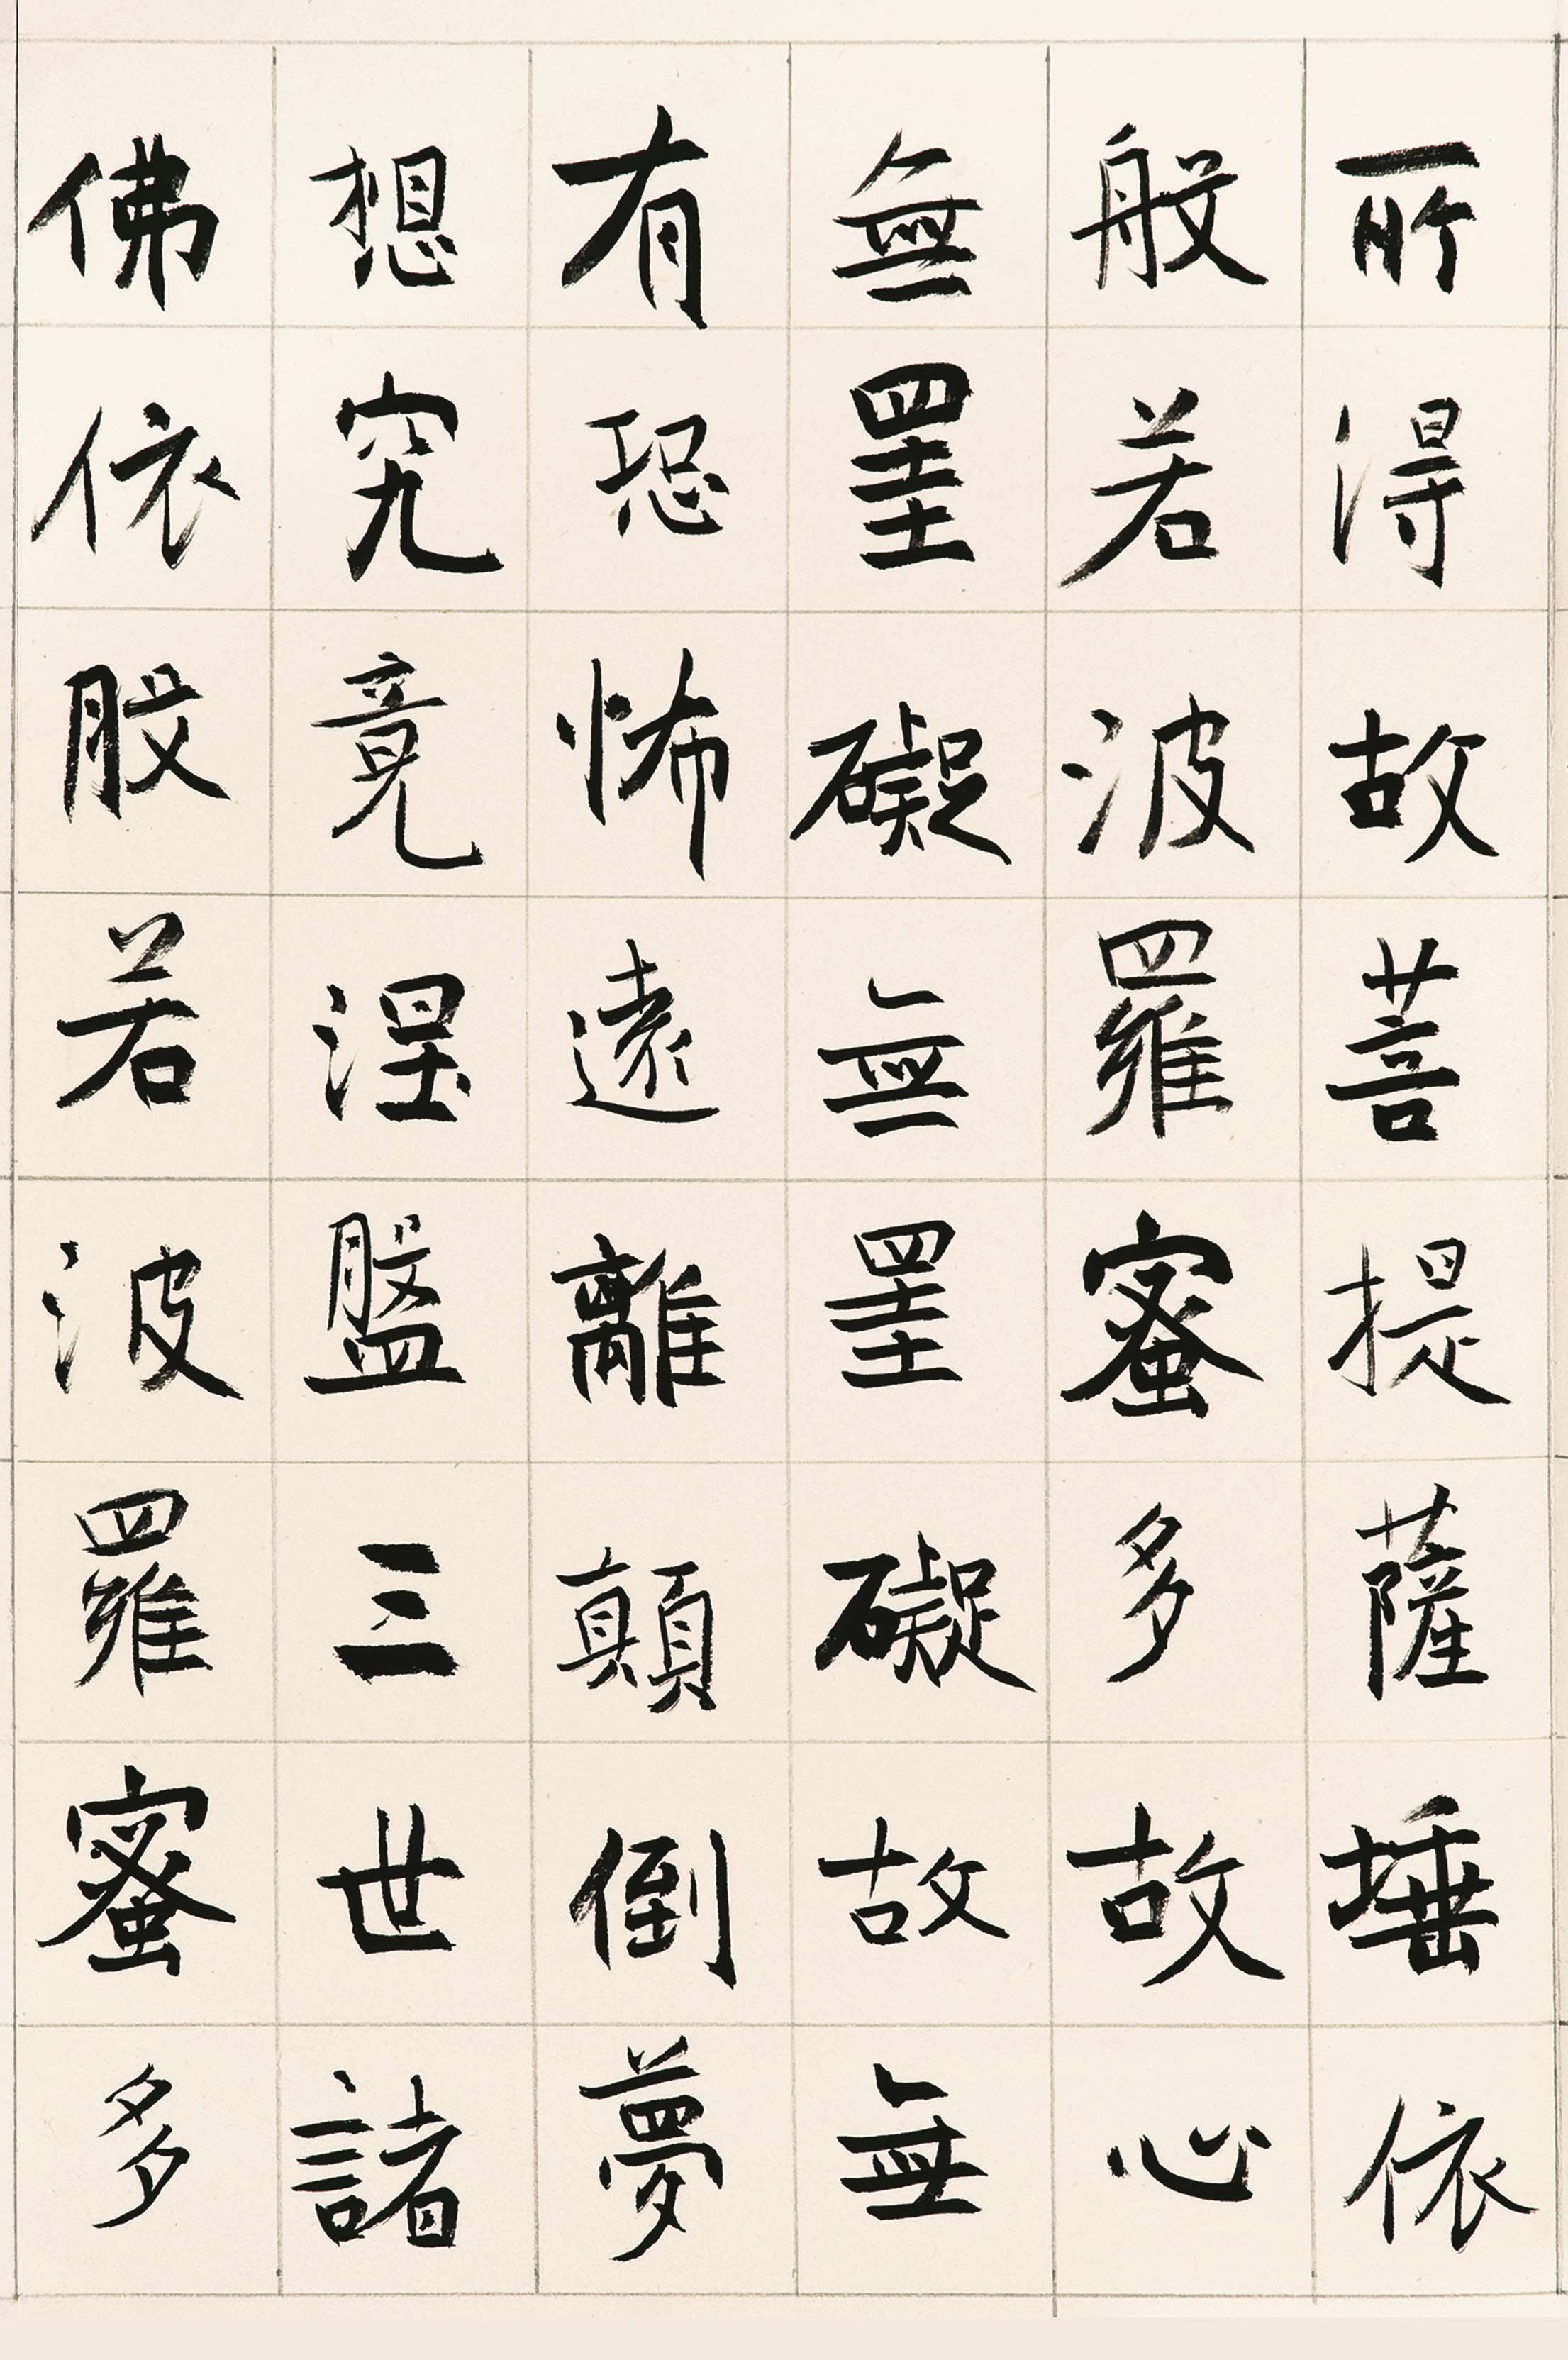 所得故菩提薩埵依
般若波羅蜜多故心
無罣礙無罣礙故無
有恐怖遠離顛倒夢
想究竟涅盤三世諸
佛依般若波羅蜜多